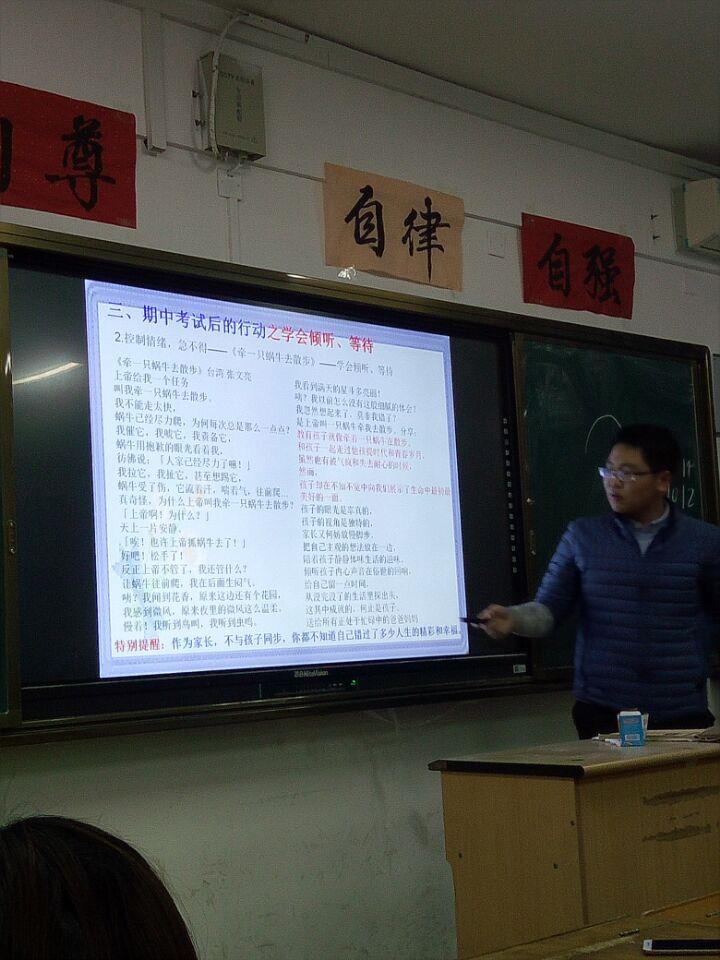 尊
自律
自强
三、期中考试后的行动之学会倾听、等待
2.控制情绪，急不得——《牵一只蜗牛去散步》——学会倾听、等待
《牵一只蜗牛去散步》台湾 张文亮
上帝给我一个任务
叫我牵一只蜗牛去散步。
我不能走太快，
蜗牛已经尽力爬，为何每次总是那么一点点？
我催它，我唬它，我责备它，
蜗牛用抱歉的眼光看着我，
彷佛说：「人家已经尽力了嘛！」
我拉它，我扯它，甚至想踢它，
蜗牛受了伤，它流着汗，喘着气，往前爬...
真奇怪，为什么上帝叫我牵一只蜗牛去散步？
「上帝啊！为什么？」
天上一片安静。
「唉！也许上帝抓蜗牛去了！」
好吧！松手了！
反正上帝不管了，我还管什么？
让蜗牛往前爬，我在后面生闷气。
咦？我闻到花香，原来这边还有个花园，
我感到微风，原来夜里的微风这么温柔。
慢着！我听到鸟叫，我听到虫鸣。
我看到满天的星斗多亮丽！
咦？我以前怎么没有这般细腻的体会？
我忽然想起来了，莫非我错了？
是上帝叫一只蜗牛牵我去散步。分享。
教育孩子就像牵着一只蜗牛在散步。
和孩子一起走过他孩提时代和青春岁月，
虽然也有被气疯和失去耐心的时候，
然而，
孩子却在不知不觉中向我们展示了生命中最初最
美好的一面。
孩子的眼光是率真的，
孩子的视角是独特的，
家长又何妨放慢脚步，
把自己主观的想法放在一边，
陪着孩子静静体味生活的滋味，
倾听孩子内心声音在俗世的回响，
给自己留一点时间，
从没完没了的生活里探出头，
这其中成就的，何止是孩子。
送给所有正处于忙碌中的爸爸妈妈
特别提醒：作为家长，不与孩子同步，你都不知道自己错过了多少人生的精彩和幸福。
HiteVision